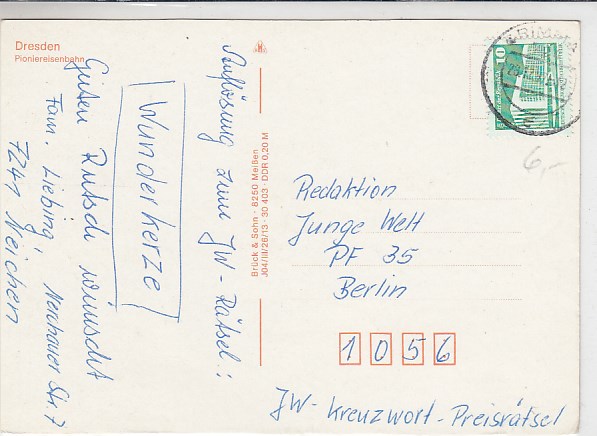 Dresden
Pioniereisenbahn
Auflösung zum JW-Rätsel:
Wunderkerze
Guten Rutsch wünscht
Fam. Liebing, Neuhauser Str. 7
7241 Neichen
Brück & Sohn · 8250 Meißen
J04/III/26/13 · 30 403 · DDR 0,20 M
GRIMMA
10
Redaktion
Junge Welt
PF 35
Berlin
1056
JW-Kreuzwort-Preisrätsel
6,-